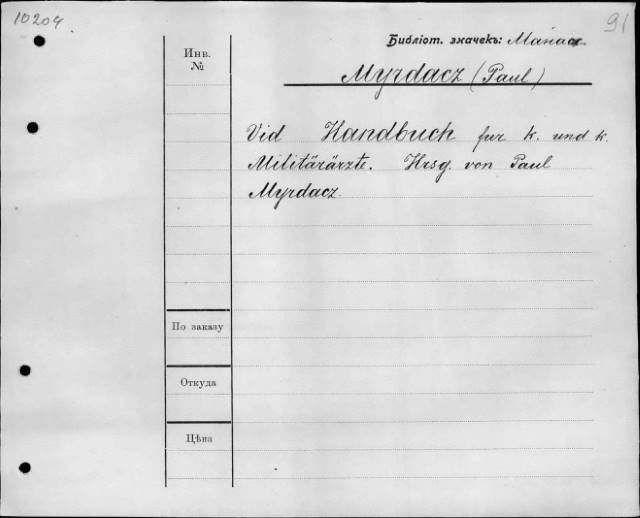 10204
91
Библіот. значекъ:
Инв.
№
Myrdacz (Paul)
Vid Handbuch fur k. und k.
Militärärzte. Hrsg. von Paul
Myrdacz.
По заказу
Откуда
Цѣна